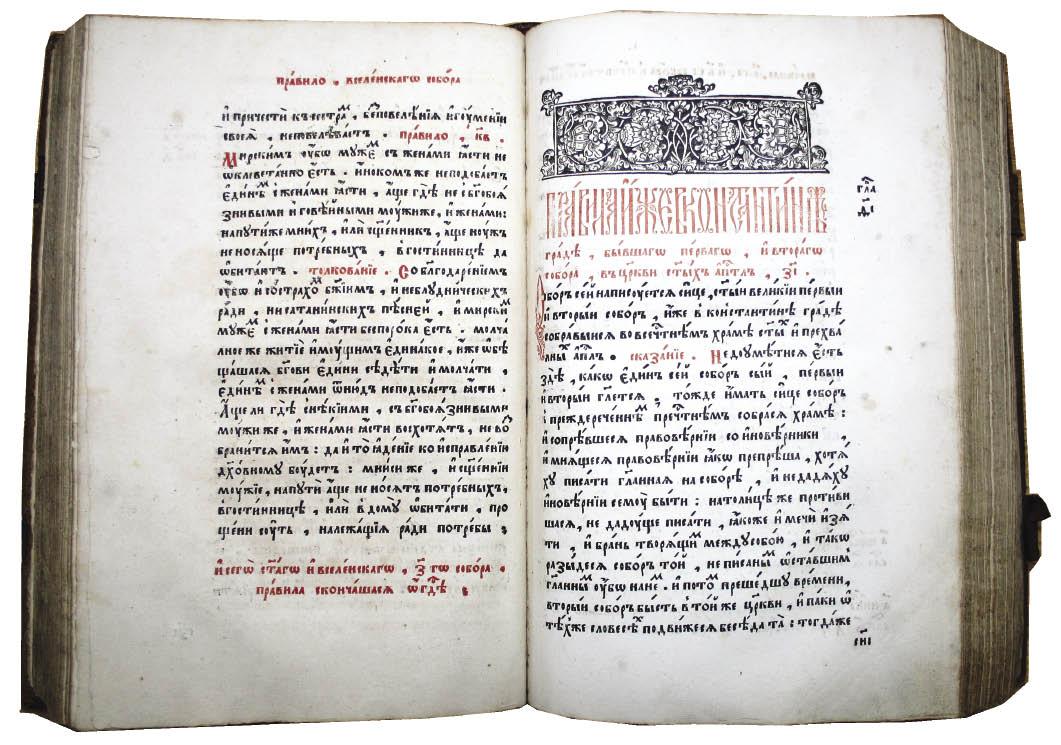 пра́вило , вселе́нскагѡ собо́ра
и҆ причестѝ къ сестра́м , без̾ повелѣ́нїѧ и҆гоу́менїи
своеѧ̀ , неповелѣва́етъ . пра́вило , кв .
Мирски́мъ ᲂу҆́бѡ муже́мъ съ жена́ми ꙗ҆́сти не
ѡ҆клевета́нно є҆́сть . и҆́нокомъ же неподоба́етъ
є҆ди́нѣмъ с жена́ми ꙗ҆́сти , а҆́ще гдѣ̀ не с бг҃обоѧ́
знивыми и҆ говѣ́йными моу́жи же , и҆ жена́ми :
на пути́ же мни́хъ , и҆лѝ сщ҃е́нникъ , а҆́ще ноу́жъ
не носѧ́ще потре́бныхъ , в гости́нницѣ да
ѡ҆бита́ютъ . толкова́нїе . Со бл҃годаре́нїемъ
ᲂу҆́бѡ и҆ со стра́хомъ бж҃їимъ , и҆ не блудни́ческихъ
ра́ди , ни сатани́нскихъ пѣ́сней , и҆ мирски́мъ
муже́мъ с жена́ми ꙗ҆́сти беспоро́ка є҆́сть . молча
ли́вое же житїѐ и҆мᲂу́щимъ є҆дина́кое , и҆́же ѡ҆бѣ
ща́шасѧ бг҃ови є҆ди́ни сѣдѣ́ти и҆ молча́ти ,
є҆ди́нѣмъ с жена́ми ѿню́дъ неподоба́етъ ꙗ҆́сти .
А҆́ще ли гдѣ̀ с нѣ́кими , съ бг҃обоѧ́знивыми
моу́жи же , и҆ жена́ми ꙗ҆́сти восхотѧ́тъ , не во
брани́тсѧ и҆̀мъ : да и҆ то̀ ꙗ҆де́нїе ко и҆справле́нїю
дꙋхо́вному бꙋ́детъ : мни́си же , и҆ сщ҃е́ннїи
моу́жїе , на путѝ а҆́ще не но́сѧтъ потре́бныхъ ,
в гости́нницѣ , и҆лѝ в домꙋ̀ ѡ҆бита́ти , про
ще́ни сꙋ́ть , належа́щїѧ ра́ди потре́бы ;
и҆ сегѡ̀ ст҃а́гѡ и҆ вселе́нскагѡ , з҃гѡ собо́ра .
пра́вила сконча́шасѧ
гла
пра́вила и҆̀же в констѧнти́нѣ
гра́дѣ , бы́вшагѡ пе́рвагѡ , и҆ втора́гѡ
собо́ра , въ цр҃кви ст҃ы́хъ а҆пⷭ҇лъ , з҃і .
Собо́ръ се́й написꙋ́етсѧ си́це , ст҃ы́й вели́кїй пе́рвый
и҆ вторы́й собо́ръ , и҆́же в констѧнти́нѣ гра́дѣ
собра́выйсѧ во всечⷭ҇тнѣмъ хра́мѣ ст҃ы́хъ и҆ прехва́
лныхъ а҆пⷭ҇лъ . сказа́нїе . Недоумѣ́тисѧ є҆́сть
здѣ̀ , ка́кѡ є҆ди́нъ се́й собо́ръ сы́й , пе́рвый
и҆ вторы́й гл҃етсѧ , то́жде и҆́мать си́це собо́ръ
в преждерече́ннѣмъ пречⷭ҇тнѣмъ собра́сѧ хра́мѣ :
и҆ сопрѣ́вшесѧ правовѣ́рнїи со и҆новѣ́рники ,
и҆ мнѧ́щесѧ правовѣ́рнїи ꙗ҆́кѡ препрѣ́ша , хотѧ́
хꙋ писа́ти гл҃анная на собо́рѣ , и҆ не да́дѧхꙋ
и҆новѣ́рнїи семꙋ̀ бы́ти : на толи́цѣ же проти́ви
шасѧ , не дадꙋ́ще писа́ти , ꙗ҆́коже и҆ мечѝ и҆зѧ́
ти , и҆ бра́нь творѧ́щимъ междꙋ собо́ю , и҆ та́кѡ
разы́десѧ собо́ръ то́й , не пи́саным ѡ҆ста́вшимъ
гл҃анным ᲂу҆́бѡ на не . и҆ пото́мъ преше́дшꙋ вре́мени ,
вторы́й собо́ръ бы́сть в то́й же цр҃кви , и҆ па́ки ѡ҆
тѣ́хже словесѣ́хъ подви́жесѧ бесѣ́да та̀ : тогда́ же